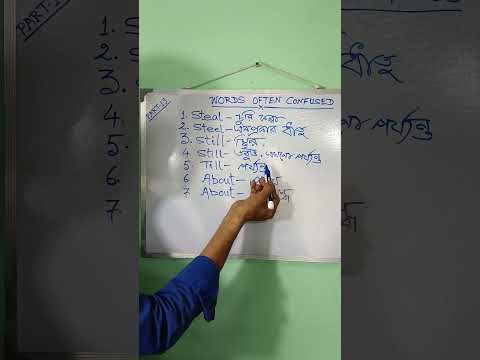 PART-13
WORDS OFTEN CONFUSED
1. Steal - চুরি করা
2. Steel - একপ্রকার ধাতু
3. Still - স্থির,
4. Still - তবুও, এখনো পর্যন্ত
5 Till - পর্যন্ত
6 About -
7 About -